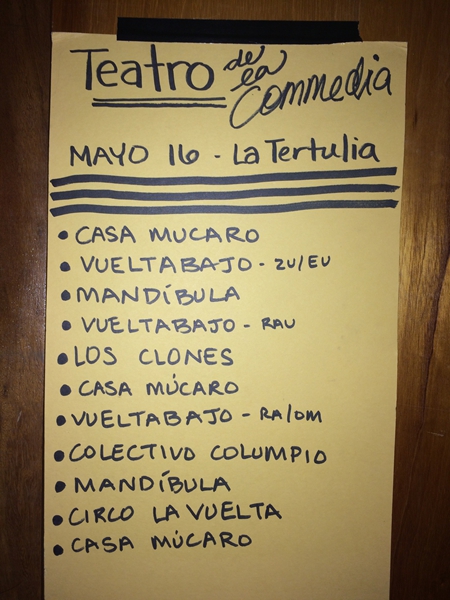 Teatro de la Commedia
MAYO 16 - La Tertulia
• CASA MUCARO
• VUELTABAJO - ZU/EU
• MANDÍBULA
• VUELTABAJO - RAU
• LOS CLONES
• CASA MÚCARO
• VUELTABAJO - RA/OM
• COLECTIVO COLUMPIO
• MANDÍBULA
• CIRCO LA VUELTA
• CASA MÚCARO